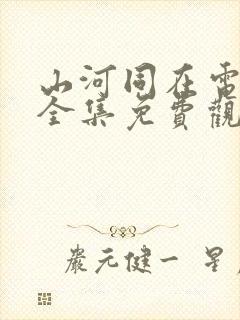 山河同在電
全集免費觀
嚴元健一 星